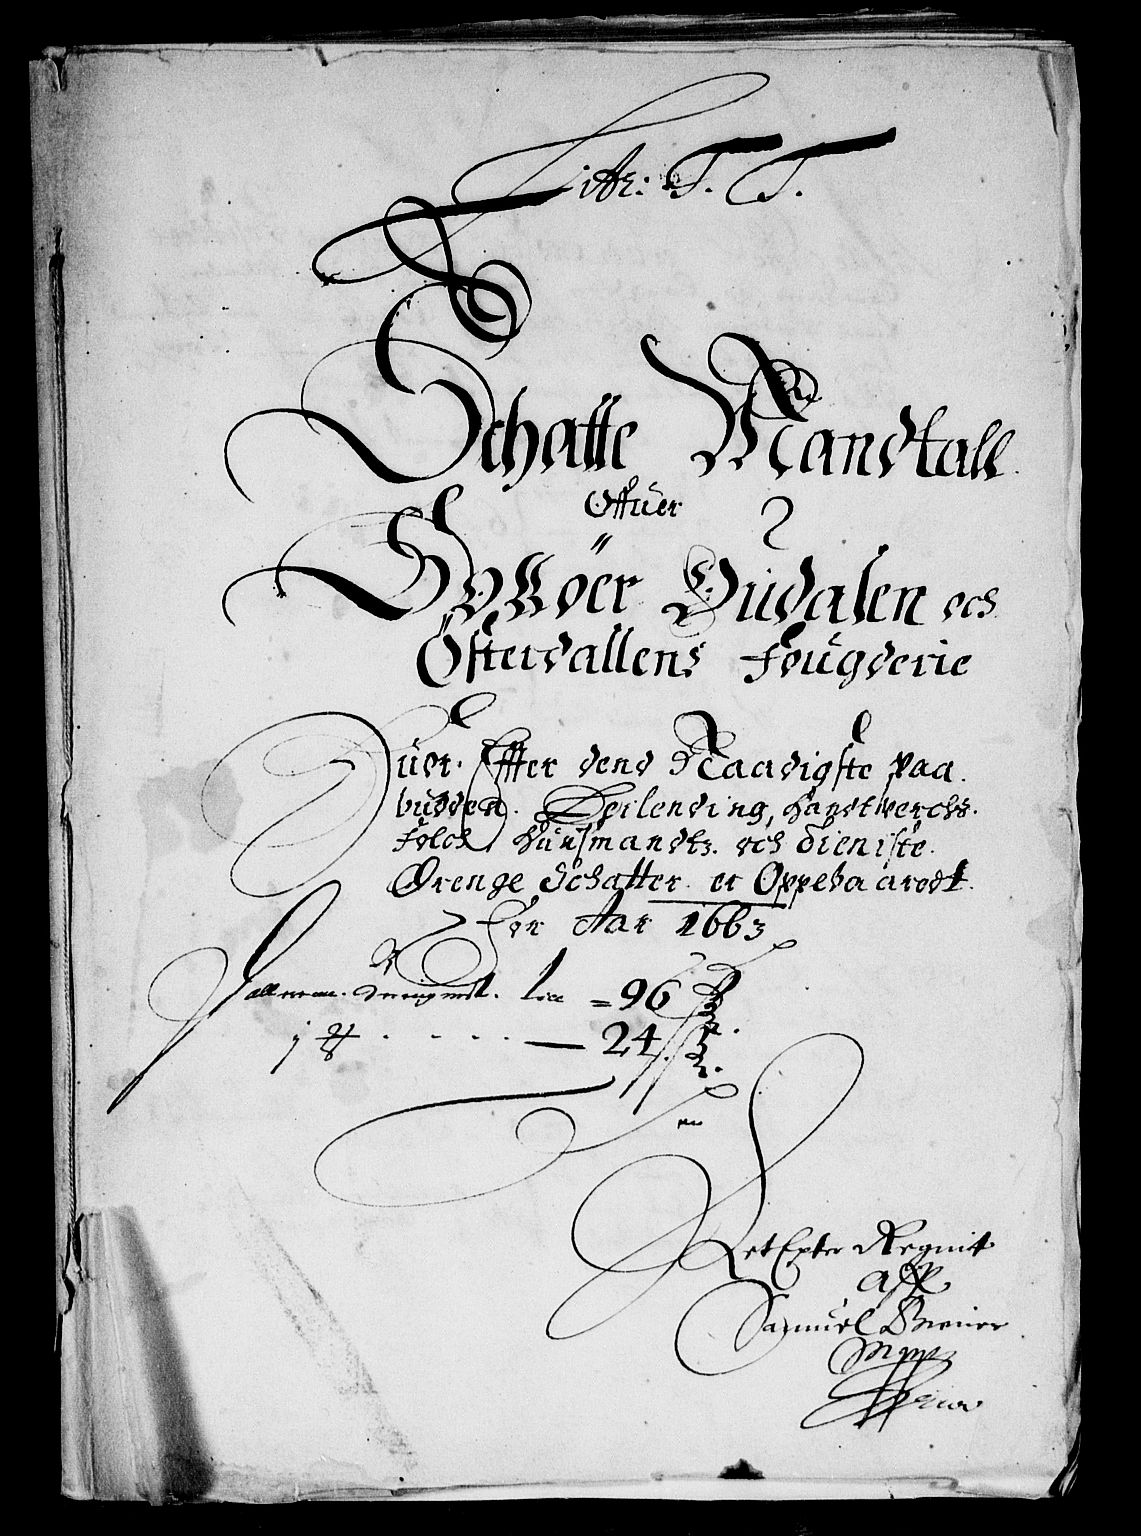 Litr: T. T.
Schatte Mandtall
Offuer
Sollöer Gudalen och
Österdallens Fougderie
Huor Effter dend Naadigste paa
budden. Spilending, Handtwerchs
Folch Huusmandtz och Dieniste
Drenge Schatter er Oppebaaredt
For Aar 1663
96
24
Ret Exter Regnit
aff
Samuel
Mppa